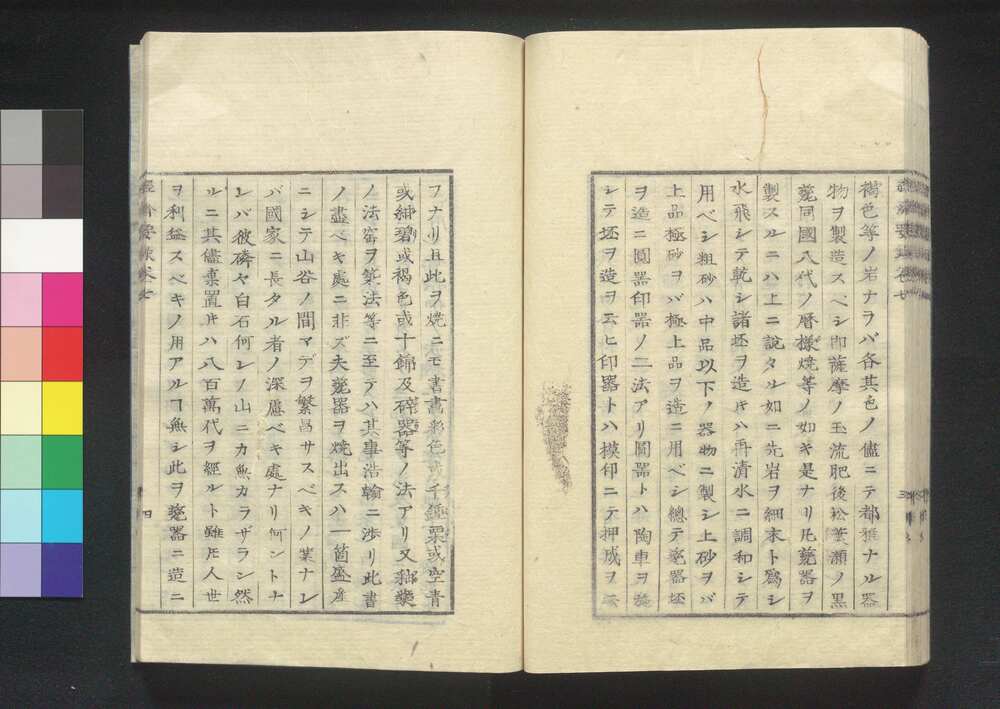 褐色等ノ岩ナラバ各其色ノ儘ニテ都雅ナル器
物ヲ製造スベシ即薩摩ノ玉流肥後松葉瀬ノ黒
甆同國八代ノ暦様焼等ノ如キ是ナリ凡甆器ヲ
製スルニハ上ニ說タル如ニ先岩ヲ細末ト爲シ
水飛シテ乾シ諸坯ヲ造ルキハ再清水ニ調和シテ
用ベシ粗砂ハ中品以下ノ器物ニ製シ上砂ヲバ
上品極砂ヲバ極上品ヲ造ニ用ベシ總テ甆器坯
ヲ造ニ圓器印器ノ二法アリ圓器トハ陶車ヲ旋
シテ坯ヲ造ヲ云ヒ印器トハ模印ニテ押成ヲ云
フナリ且此ヲ焼ニモ書畫彩色或千鍾粟或空青
或紺碧或褐色或十錦及碎器等ノ法アリ又釉漿
ノ法窰ヲ築法等ニ至テハ其事浩翰ニ渉リ此書
ノ盡ベキ處ニ非ズ夫甆器ヲ焼出スハ一箇盛産
ニシテ山谷ノ間マデヲ繁昌サスベキノ業ナレ
バ國家ニ長タル者ノ深慮ベキ處ナリ何ントナ
レバ彼磷ヤ白石何レノ山ニカ無カラザラン然
ルニ其儘棄置キハ八百萬代ヲ經ルト雖𪜈人世
ヲ利益スベキノ用アルヿ無シ此ヲ甆器ニ造ニ
四